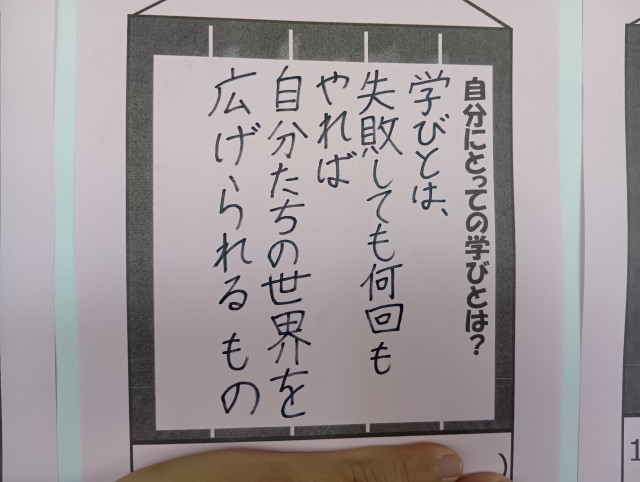 自分にとっての学びとは？
学びとは、
失敗しても何回も
やれば
自分たちの世界を
広げられるもの
)
1